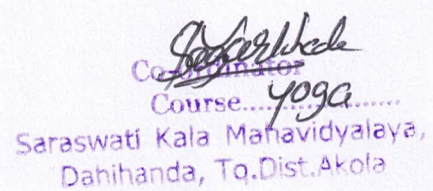 Co-ordinator
Course......yoga......
Saraswati Kala Mahavidyalaya,
Dahihanda, Tq.Dist.Akola